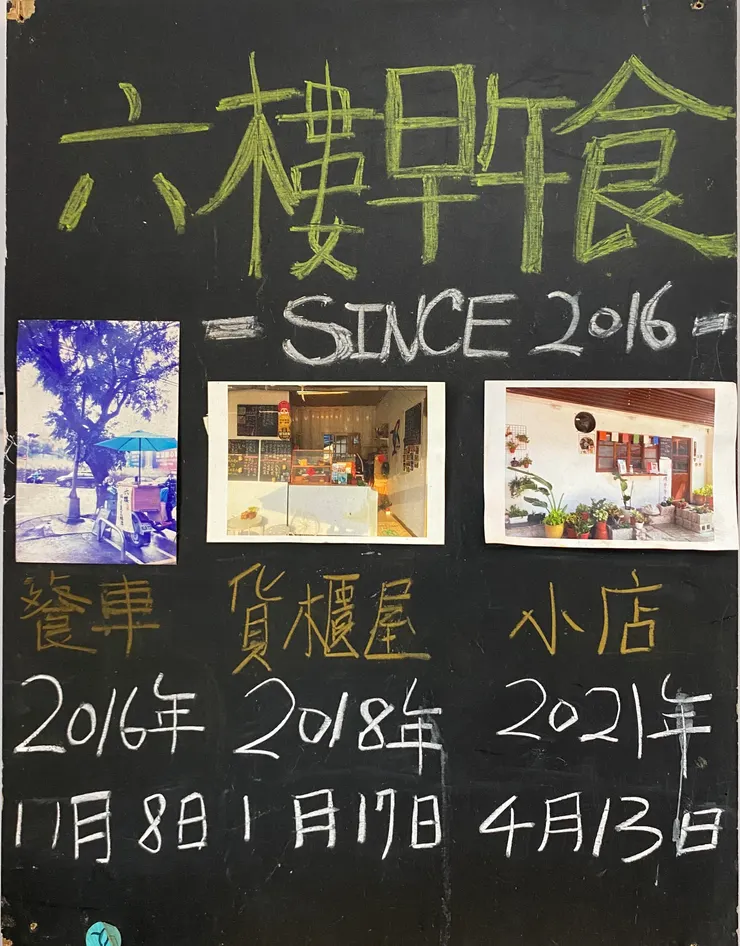 六樓早午食
- SINCE 2016 -
餐車 貨櫃屋 小店
2016年 2018年 2021年
11月8日 1月17日 4月13日